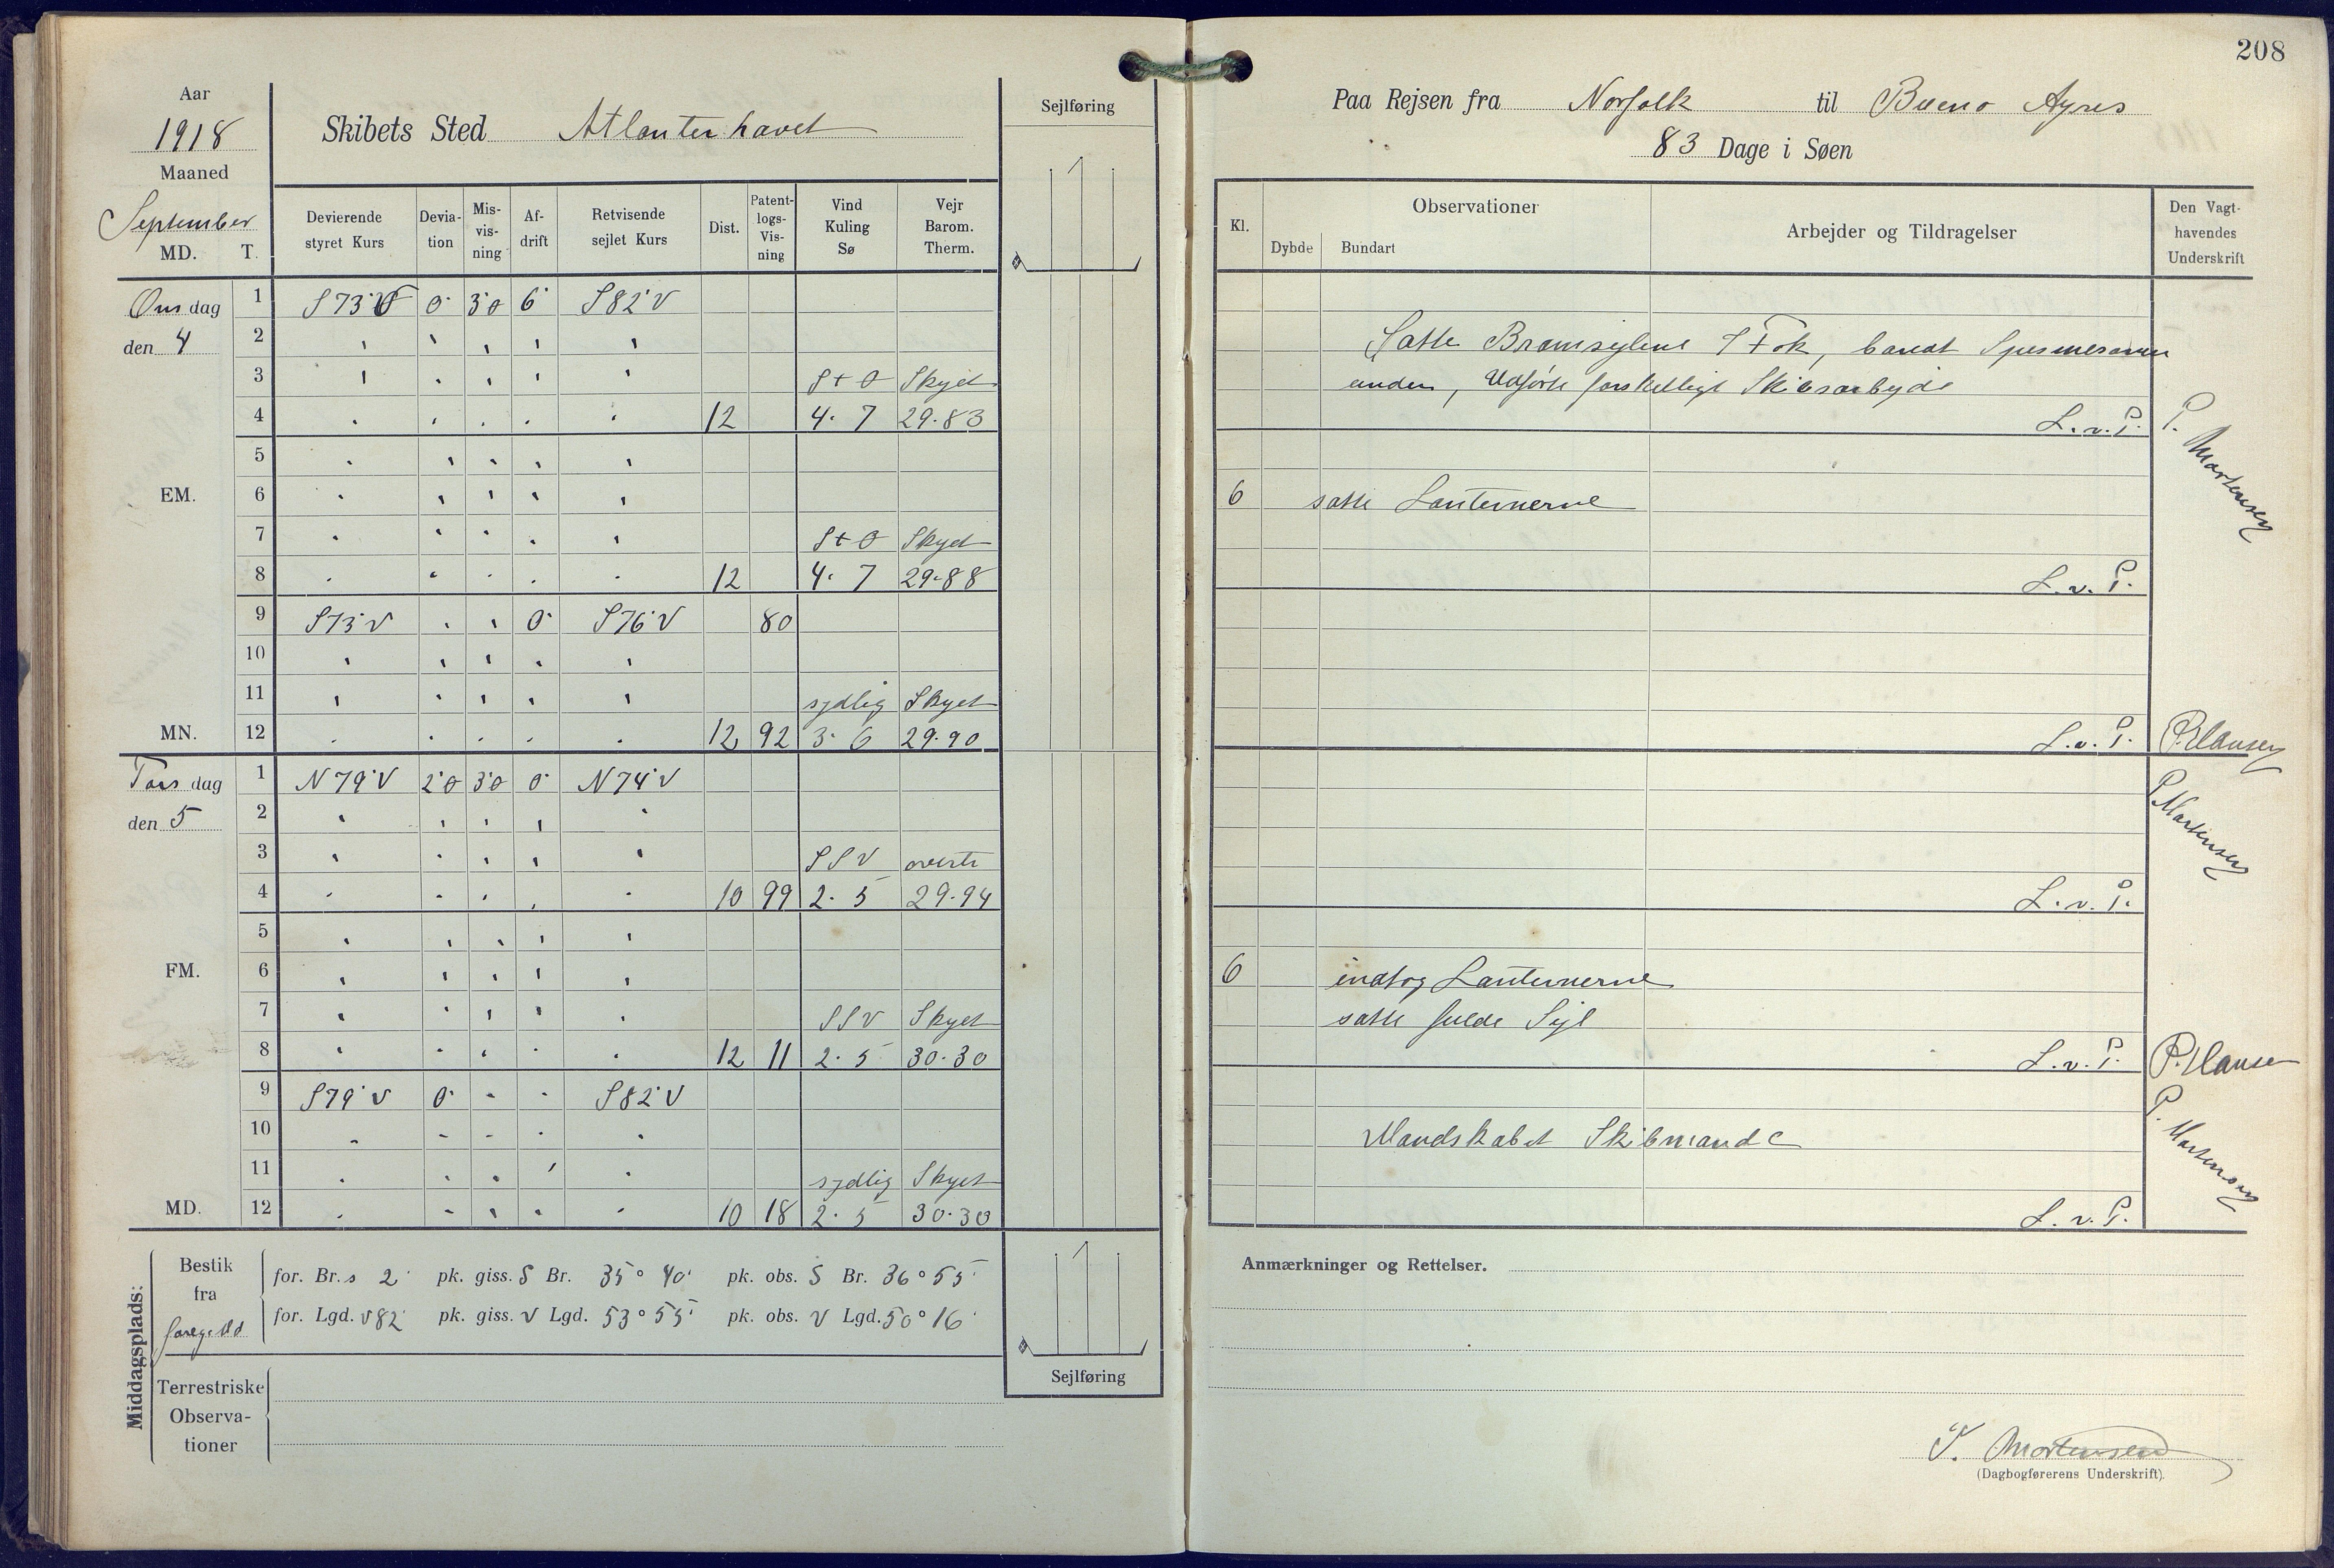 208
Aar
1918
Maaned
September
MD. T.
Skibets Sted Atlanterhavet
Sejlføring
Devierende styret Kurs
Deviation
Misvisning
Afdrift
Retvisende sejlet Kurs
Dist.
Patentlogs-Visning
Vind Kuling Sø
Vejr Barom. Therm.
Onsdag
den 4
1 S73°V 0° 3°O 6° S82°V
2
3 StO Skyet
4 12 4. 7 29.83
5
EM.
6
7 StO Skyet
8 12 4. 7 29.88
9 S73°V 0° S76°V 80
10
11 sydlig Skyet
MN.
12 12 92 3. 6 29.90
Torsdag
den 5
1 N79°V 2°O 3°O 0° N74°V
2
3 SSV overtr
4 10 99 2. 5 29.94
5
FM.
6
7 SSV Skyet
8 12 11 2. 5 30.30
9 S79°V 0° S82°V
10
11 sydlig Skyet
MD.
12 10 18 2. 5 30.30
Middagsplads:
Bestik
fra
for. Br. s 2' pk. giss. S Br. 35° 40' pk. obs. S Br. 36° 55'
for. Lgd. V 82' pk. giss. V Lgd. 53° 55' pk. obs. V Lgd. 50° 16'
Terrestriske
Observa-
tioner
Sejlføring
Paa Rejsen fra Norfolk til Bueno Ayres
83 Dage i Søen
Kl.
Observationer
Dybde Bundart
Arbejder og Tildragelser
Den Vagt-
havendes
Underskrift
Satte Bramsejlene Fok,
under, Udførte forskelligt Skibsarbejde
L. v. P. P. Mortensen
6 satte Lanternerne
L. v. P.
L. v. P. P. Hansen
P. Mortensen
L. v. P.
6 indtog Lanternerne
satte fulde Sejl
L. v. P. P. Hansen
Mandskabet
P. Mortensen
L. v. P.
Anmærkninger og Rettelser.
Mortensen
(Dagbogførerens Underskrift).